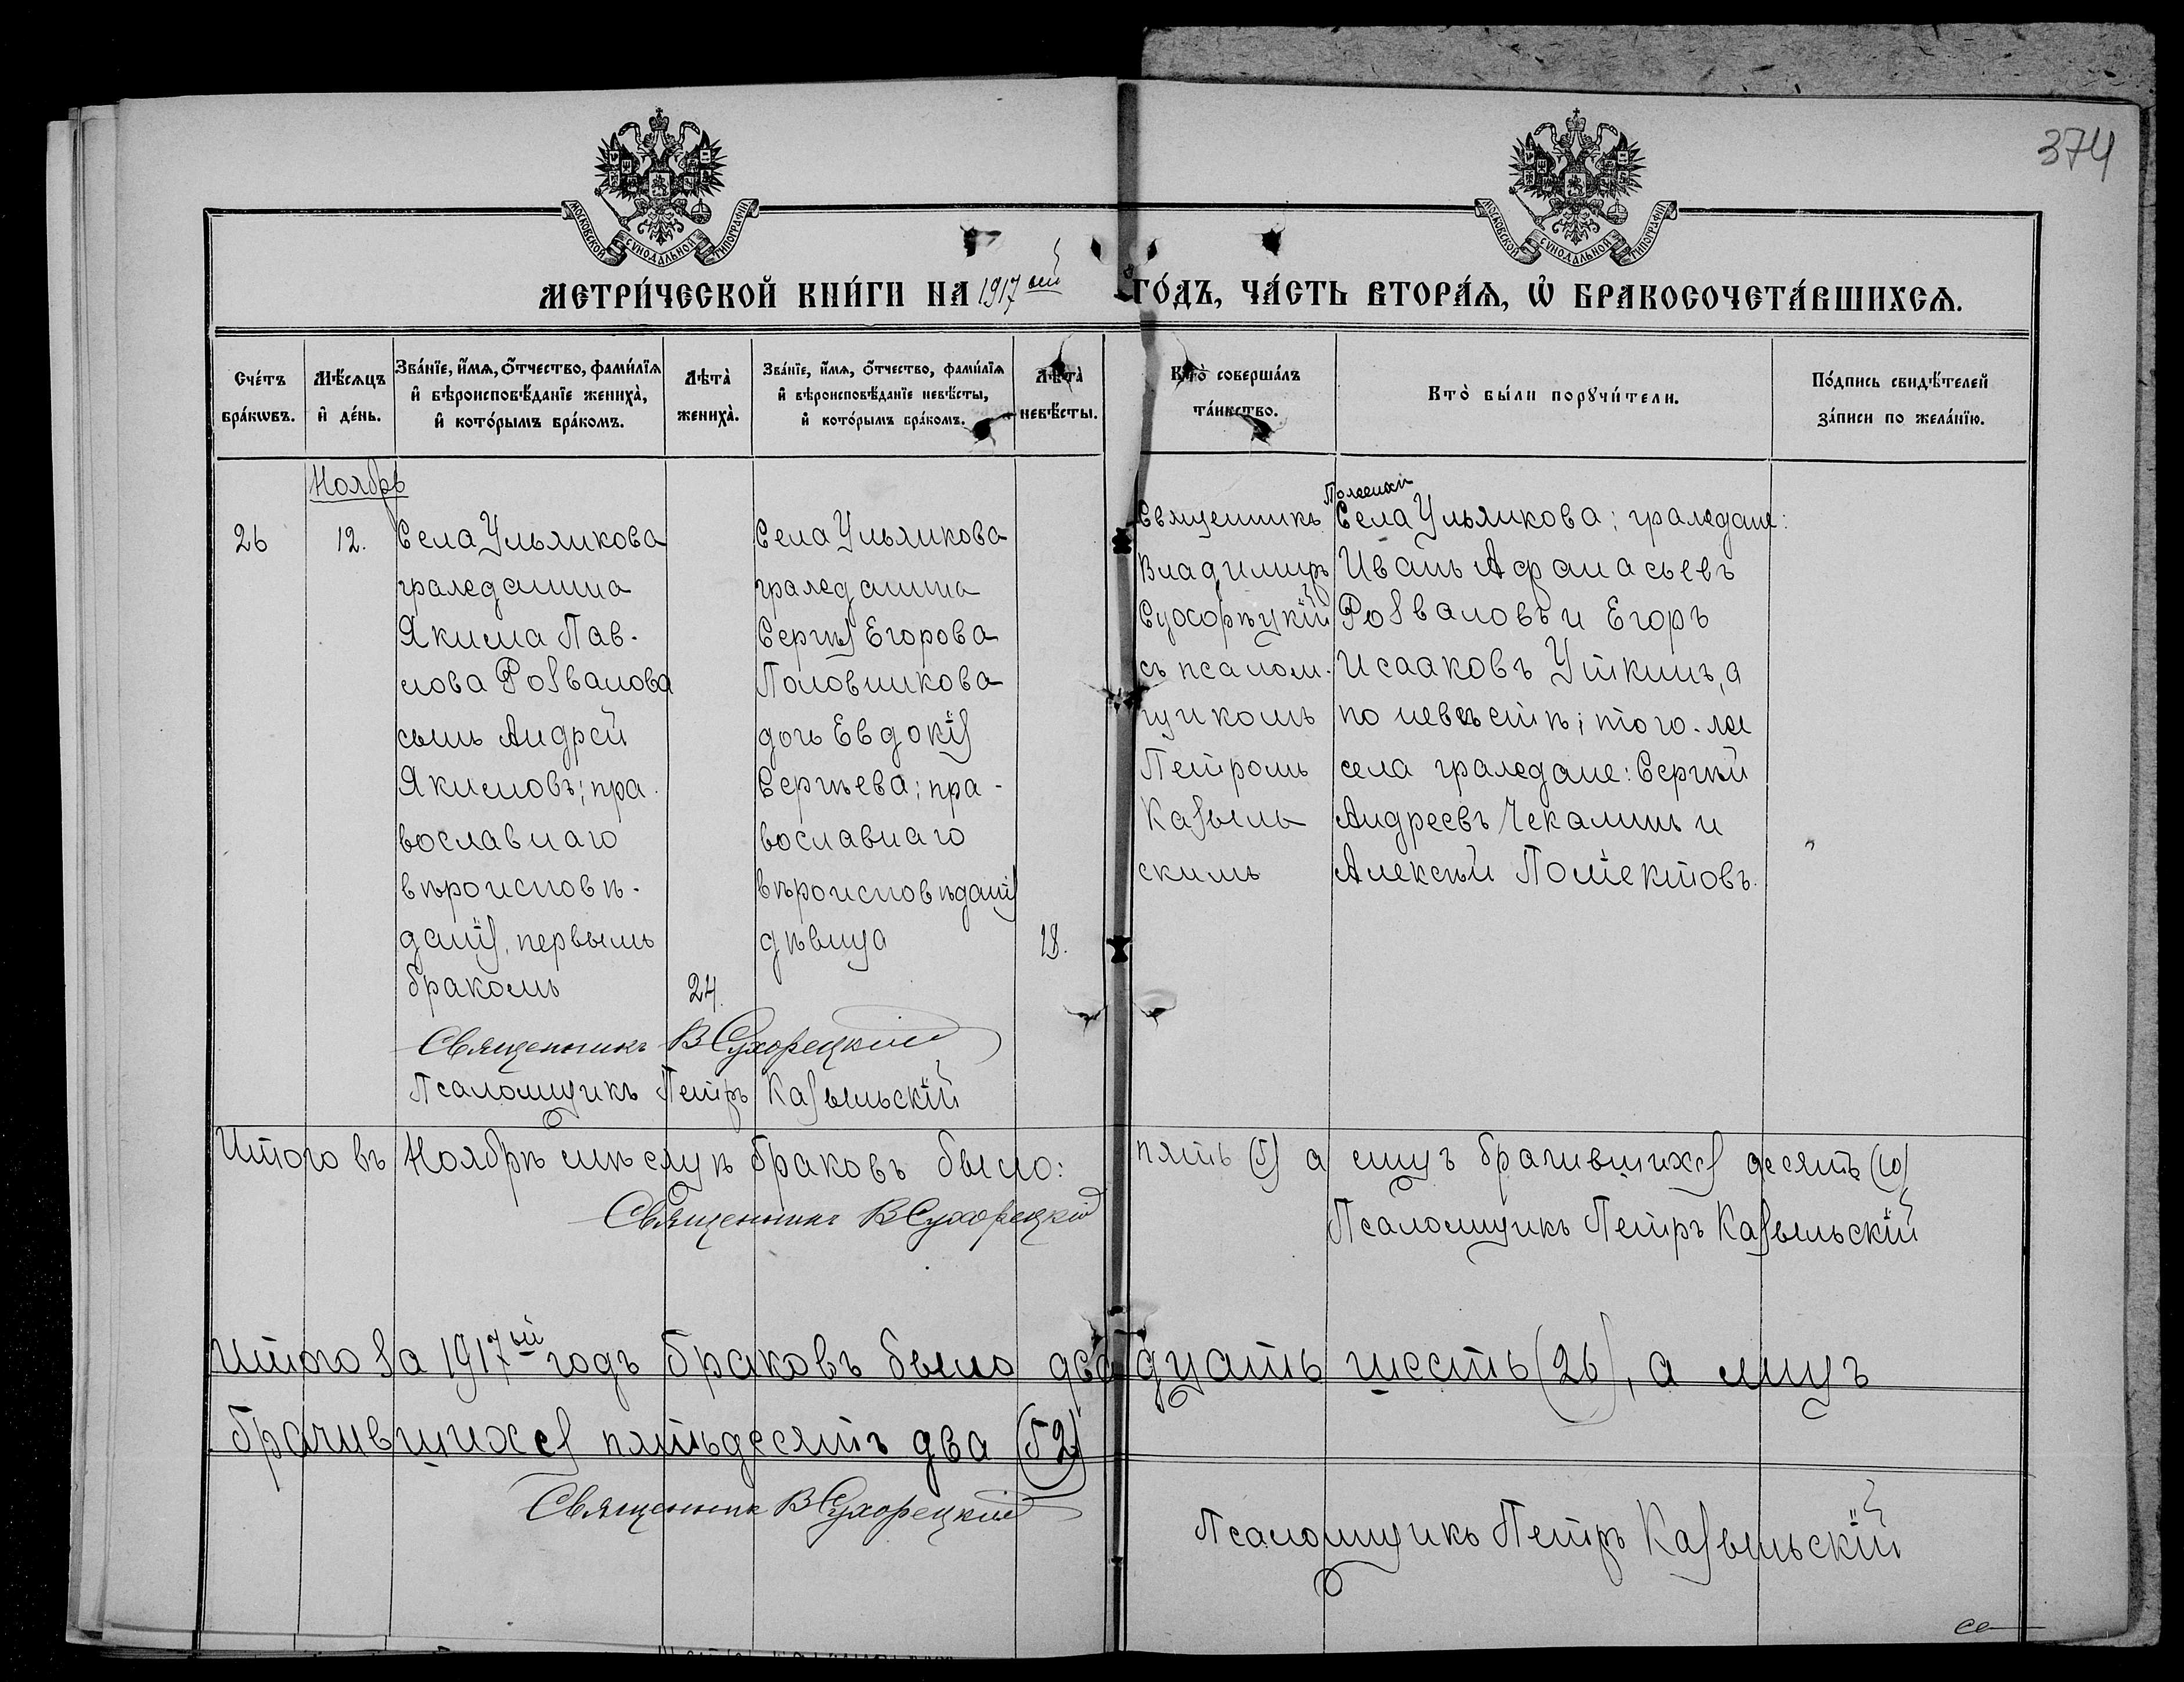 374
МОСКОВСКОЙ СѴНОДАЛЬНОЙ ТИПОГРАФІИ
МОСКОВСКОЙ СѴНОДАЛЬНОЙ ТИПОГРАФІИ
МЕТРИ́ЧЕСКОЙ КНИ́ГИ НА 1917ый ГО́ДЪ, ЧА́СТЬ ВТОРА́Ѧ, Ѡ҆ БРАКОСОЧЕТА́ВШИХСѦ.
Сче́тъ бра́кѡвъ.
Мѣ́сѧцъ и҆ де́нь.
Зва́нїе, и҆́мѧ, ѻ҆́тчество, фами́лїѧ и҆ вѣроисповѣ́данїе жениха̀, и҆ кото́рымъ бра́комъ.
Лѣта̀ жениха̀.
Зва́нїе, и҆́мѧ, ѻ҆́тчество, фами́лїѧ и҆ вѣроисповѣ́данїе невѣ́сты, и҆ кото́рымъ бра́комъ.
Лѣта̀ невѣ́сты.
Кто̀ соверша́лъ та́инство.
Кто̀ бы́ли порꙋчи́тели.
По́дпись свидѣ́телей за́писи по жела́нїю.
Ноябрь
26
12.
Села Ульянкова
гражданина
Якима Пав-
лова Розвалова
сынъ Андрей
Якимовъ; пра-
вославнаго
вѣроисповѣ-
данія, первымъ
бракомъ
24.
Села Ульянкова
гражданина
Сергѣя Егорова
Половникова
дочь Евдокія
Сергѣева; пра-
вославнаго
вѣроисповѣданія
дѣвица
18.
Священникъ
Владиміръ
Сухорѣцкій
съ псалом-
щикомъ
Петромъ
Казыль
скимъ
Села Ульянкова; граждане:
Иванъ Афанасьевъ
Розваловъ и Егоръ
Исааковъ Уткинъ, а
по невѣстѣ; того-же
села граждане: Сергѣй
Андреевъ Чекалинъ и
Алексѣй Поліектовъ.
Священникъ В Сухорецкій
Псаломщикъ Петръ Казыльскій
Итого въ Ноябрѣ мѣсяцѣ браковъ было: пять (5) а лицъ брачившихся десять (10)
Священникъ В Сухорецкій
Псаломщикъ Петръ Казыльскій
Итого за 1917ый годъ браковъ было двадцать шесть (26), а лицъ
брачившихся пятьдесятъ два (52)
Священникъ В Сухорецкій
Псаломщикъ Петръ Казыльскій